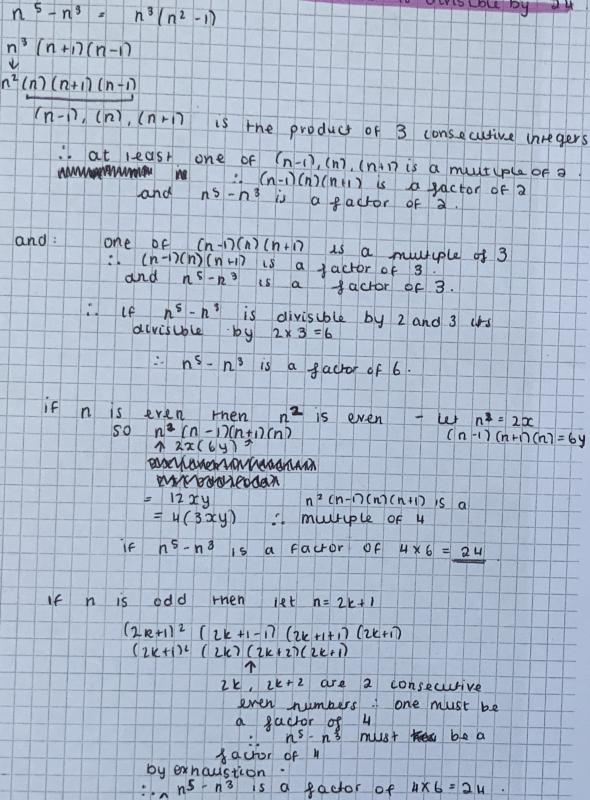 is divisible by 24
n⁵ - n³ = n³(n² - 1)
n³ (n+1)(n-1)
↓
n² (n)(n+1)(n-1)
(n-1), (n), (n+1) is the product of 3 consecutive integers
∴ at least one of (n-1), (n), (n+1) is a multiple of 2.
∴ (n-1)(n)(n+1) is a factor of 2
and n⁵ - n³ is a factor of 2.
and: one of (n-1)(n)(n+1) is a multiple of 3
∴ (n-1)(n)(n+1) is a factor of 3.
and n⁵ - n³ is a factor of 3.
∴ if n⁵ - n³ is divisible by 2 and 3 its
divisible by 2×3=6
∴ n⁵ - n³ is a factor of 6.
if n is even then n² is even - let n² = 2x
so n² (n-1)(n+1)(n) (n-1)(n+1)(n) = 6y
↑ 2x(6y)
= 12xy n² (n-1)(n)(n+1) is a
= 4(3xy) ∴ multiple of 4
if n⁵ - n³ is a factor of 4×6 = 24
if n is odd then let n = 2k+1
(2k+1)² (2k+1-1)(2k+1+1)(2k+1)
(2k+1)² (2k)(2k+2)(2k+1)
↑
2k, 2k+2 are 2 consecutive
even numbers ∴ one must be
a factor of 4
∴ n⁵ - n³ must be a
factor of 4
by exhaustion:
∴ n⁵ - n³ is a factor of 4×6 = 24.